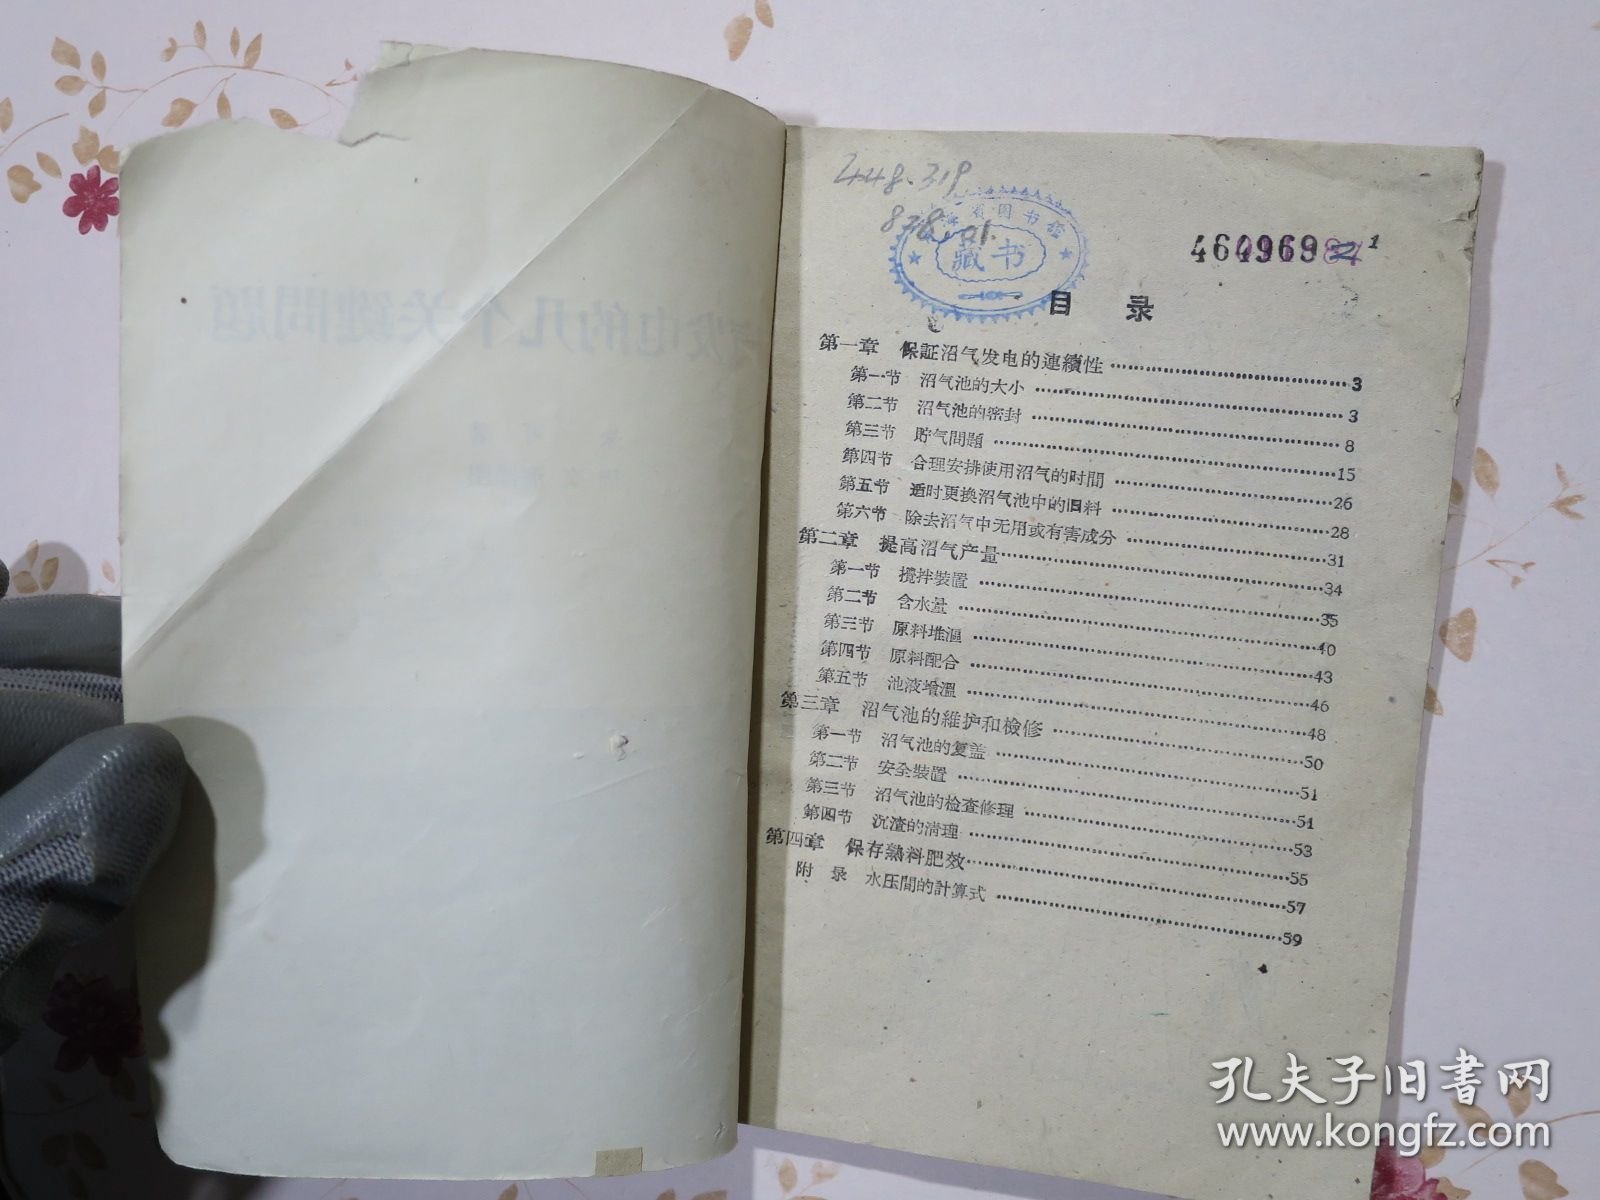 448.319
878.01
省图书馆
藏书
464969
1
目 录
第一章 保証沼气发电的連續性 3
第一节 沼气池的大小 3
第二节 沼气池的密封 8
第三节 貯气問題 15
第四节 合理安排使用沼气的时間 26
第五节 适时更换沼气池中的旧料 28
第六节 除去沼气中无用或有害成分 31
第二章 提高沼气产量 34
第一节 攪拌裝置 35
第二节 含水量 40
第三节 原料堆漚 43
第四节 原料配合 46
第五节 池液增溫 48
第三章 沼气池的維护和檢修 50
第一节 沼气池的复盖 51
第二节 安全裝置 51
第三节 沼气池的检查修理 53
第四节 沉渣的清理 55
第四章 保存熟料肥效 57
附 录 水压間的計算式 59
发电的几个关鍵問題
孔夫子旧書网
www.kongfz.com